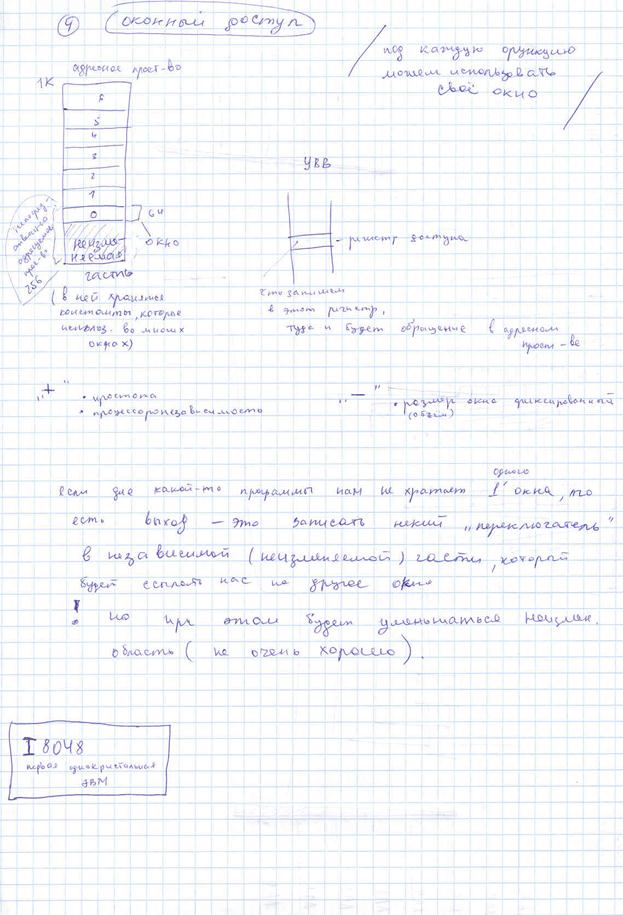 9 оконный доступ
под каждую функцию
можем использовать
своё окно
адресное прост-во
1К
6
5
4
3
2
1
0
64
окно
неизме-
няемая
часть
непосред-
ственно
адресуемое
прост-во
256
(в ней хранятся
константы, которые
использ. во многих
окнах)
УВВ
регистр доступа
что запишем
в этот регистр,
туда и будет обращение в адресном
прост-ве
„+"
• простота
• процессоронезависимость
„—"
• размер окна фиксированный
(объём)
если для какой-то программы нам не хватает 1 одного окна, то
есть выход — это записать некий „переключатель"
в независимой (неизменяемой) части, который
будет ссылать нас на другое окно
! но при этом будет уменьшаться неизмен.
область (не очень хорошо).
I 8048
первая однокристальная
ЭВМ